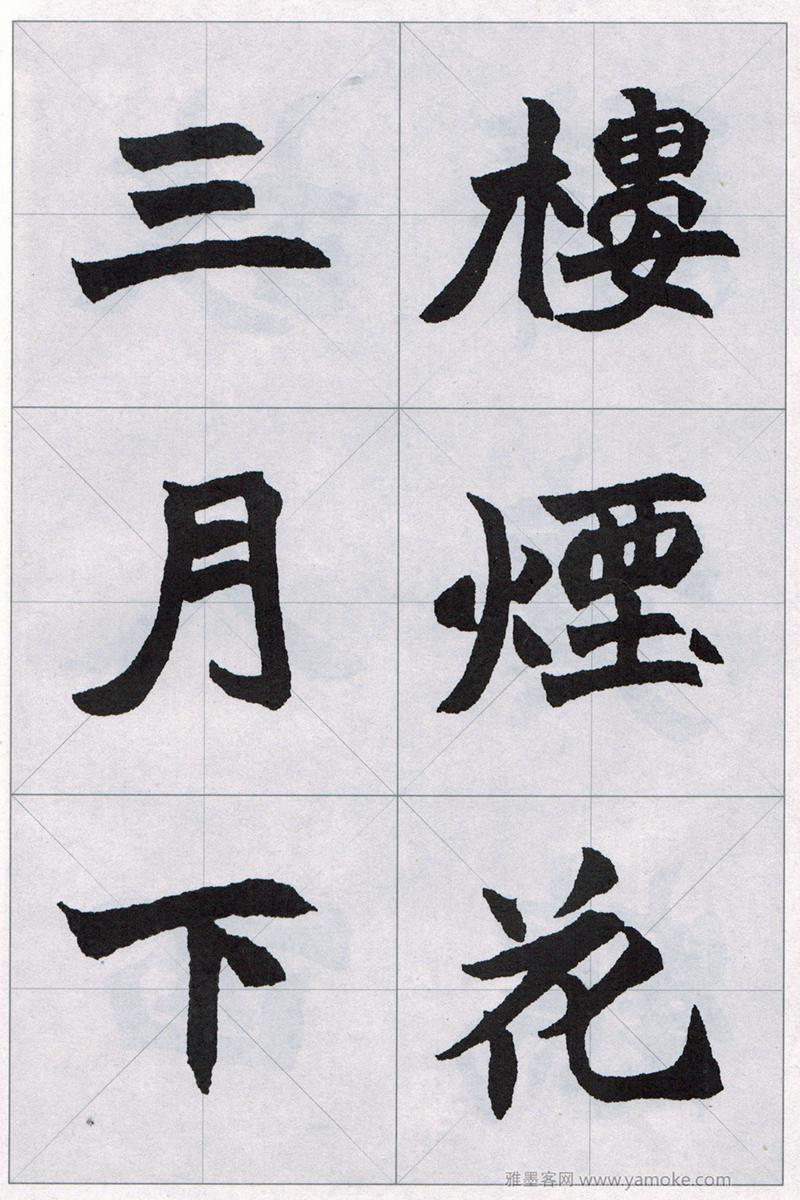 樓煙花
三月下
雅墨客网 www.yamoke.com